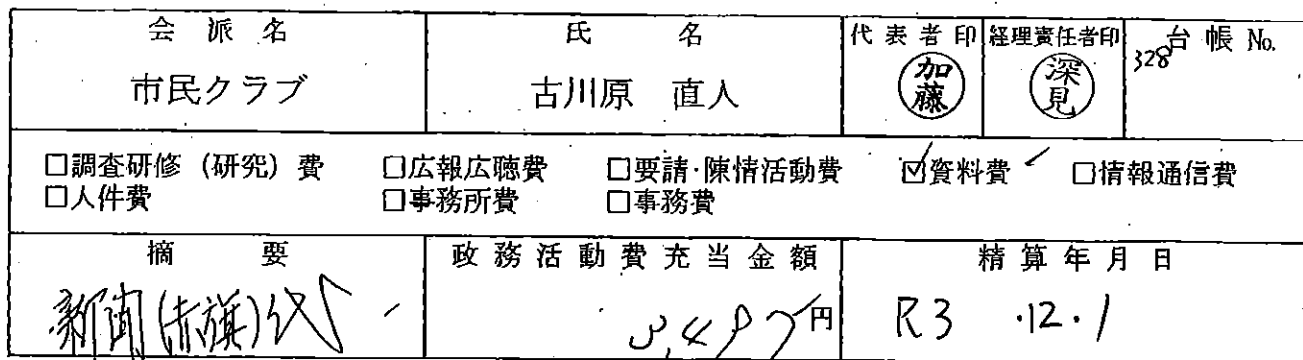 会派名 氏名 代表者印 経理責任者印 台帳 No.
市民クラブ 古川原 直人 加藤 深見 328
□調査研修(研究)費 □広報広聴費 □要請・陳情活動費 ☑資料費 □情報通信費
□人件費 □事務所費 □事務費
摘要 政務活動費充当金額 精算年月日
新聞(赤旗)代 3,497円 R3.12.1